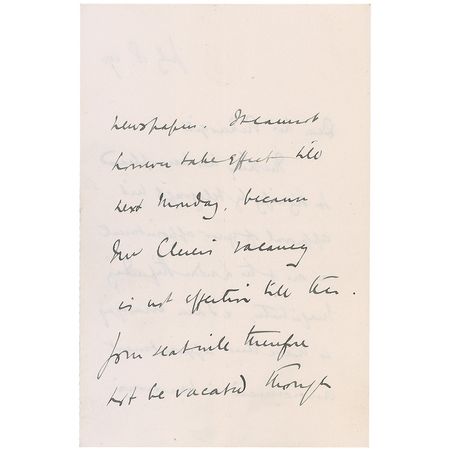 newspapers. It cannot
however take effect till
next Monday, because
Mr Clive's vacancy
is not effective till then.
your seat will therefore
not be vacated through